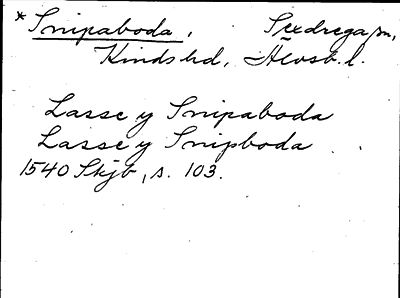 *Snipaboda, Sexdrega sn,
Kinds hd, Älvsb. l.
Lasse y Snipaboda
Lasse y Snipboda
1540 Skjb, s. 103.